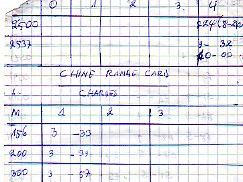 0 1 2 3. 4
2500
2537 3- 32
CHINE RANGE CARD
CHARGES
M 1 2 3
156 3 - 33
200 3 - 33
300 3 - 57